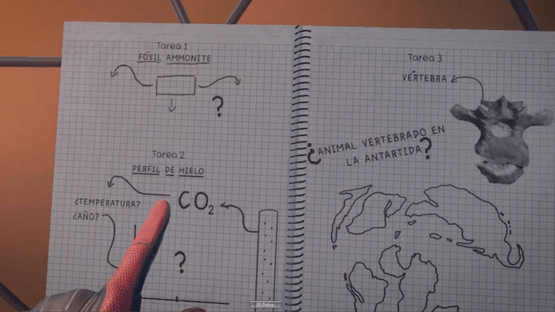 Tarea 1
FÓSIL AMMONITE
?
Tarea 2
PERFIL DE HIELO
¿TEMPERATURA?
CO₂
¿AÑO?
?
Tarea 3
VÉRTEBRA
¿ANIMAL VERTEBRADO EN
LA ANTARTIDA?